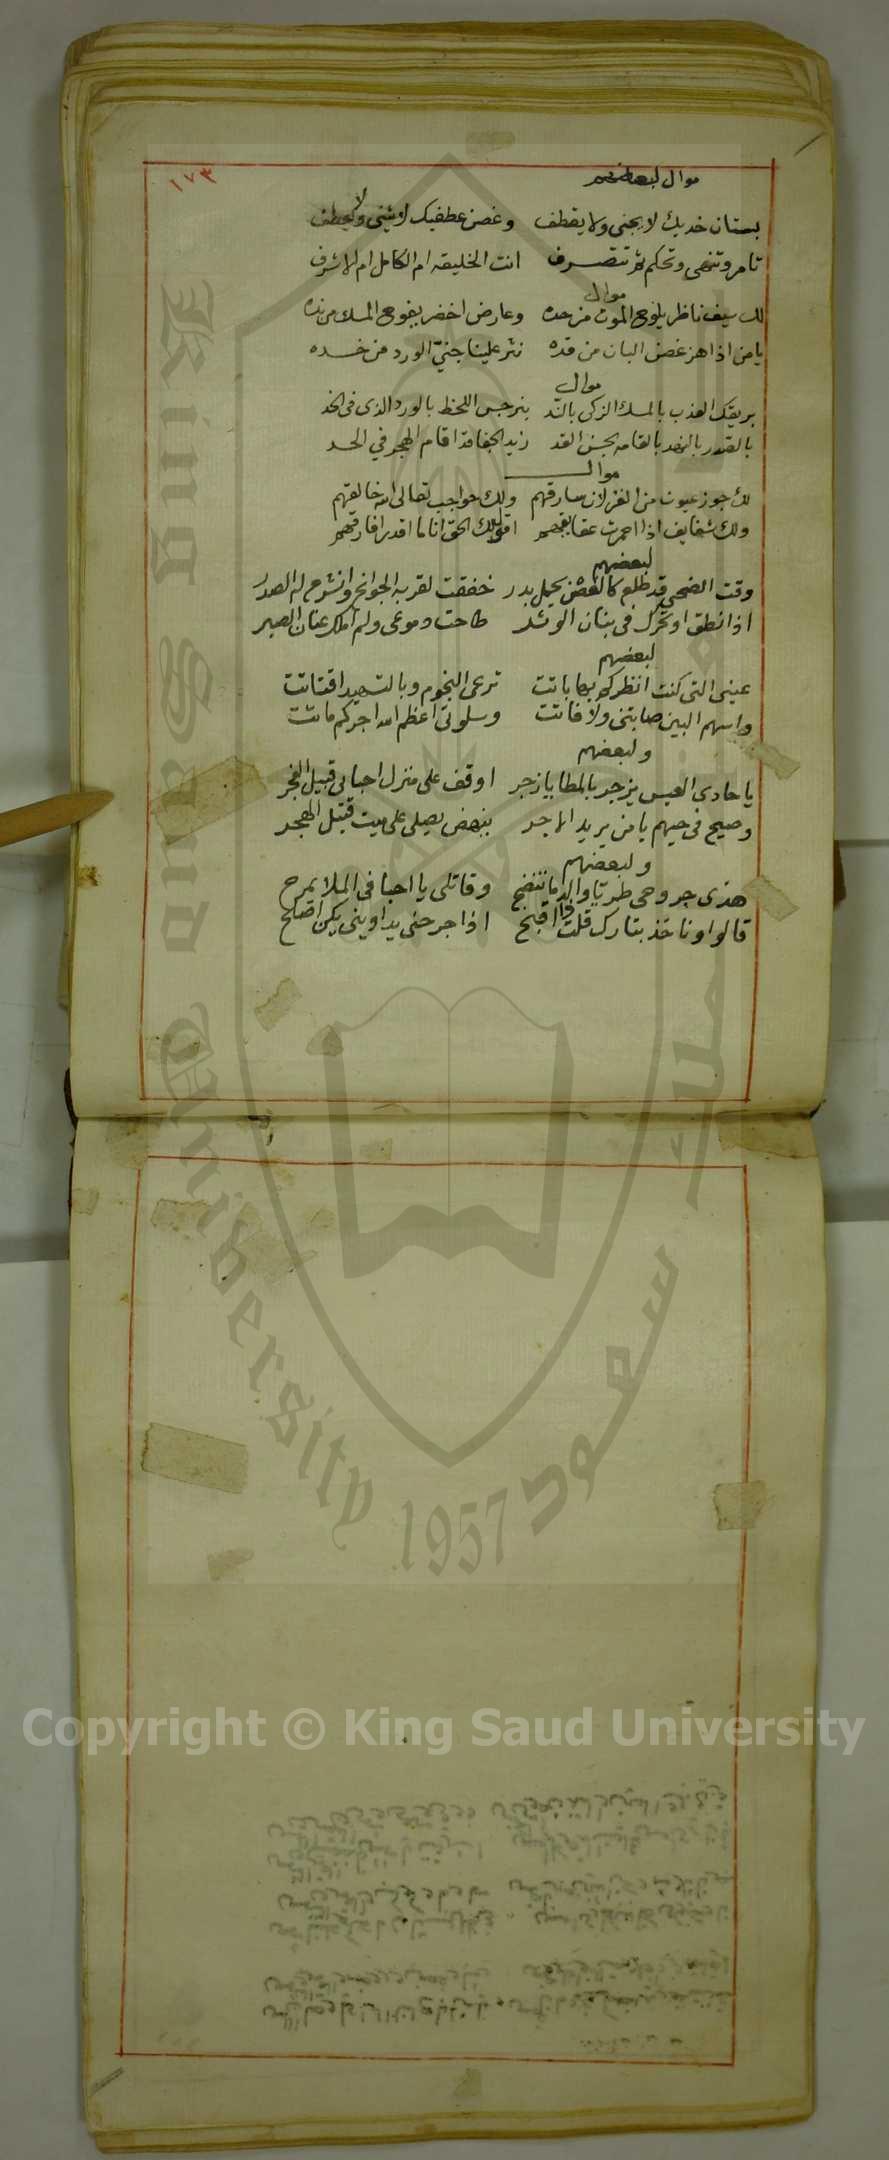 ١٧٣
موال لبعضهم
بستان خديك لا يجنى ولا يقطف وغصن عطفيك لا يثنى ولا يعطف
تامر وتنهى وتحكم ثم تتصرف انت الخليفه ام الكامل ام الاشرف
موال
لك سيف ناظر يلوح الموت من حده وعارض اخضر يفوح المسك من نده
يامن اذا هز غصن البان من قده نثر علينا جني الورد من خده
موال
بريقك العذب بالمسك الزكى بالند بنرجس اللحظ بالورد الذى فى الخد
بالصدر بالنهد بالقامه بحسن القد زيد الجفا مذا قام الهجر في الحد
موال
لك جوز عيون من الغزلان سارقهم ولك حواجب تعالى الله خالقهم
ولك شفايف اذا احمرت عقايقهم اقول لك الحق انا ما اقدر افارقهم
لبعضهم
وقت الضحى قد طلع كالغصن يحمل بدر خفقت لقربه الجوانح وانشرح له الصدر
اذا نطق او تحرك فى بنان الوشد طاحت دموعى ولم املك عنان الصبر
لبعضهم
عينى التى كنت انظركم بها باتت ترعى النجوم وبالتسهيد اقتاتت
واسهم البين صابتنى ولا فاتت وسلوتى اعظم الله اجركم ماتت
ولبعضهم
يا حادى العيس يزجر بالمطايا زجر اوقف على منزل احبابى قبيل الفجر
وصيح فى حيهم يا من يريد الاجر ينهض يصلى على ميت قتيل الهجر
ولبعضهم
هذى جروحى طريا والدما تنضح وقاتلى يا احبا فى الملا يمرح
قالوا وناخذ بتارك قلت ذا اقبح اذا جرحنى يداوينى يكن اصلح
King Saud University
جامعة الملك سعود
1957
Copyright © King Saud University